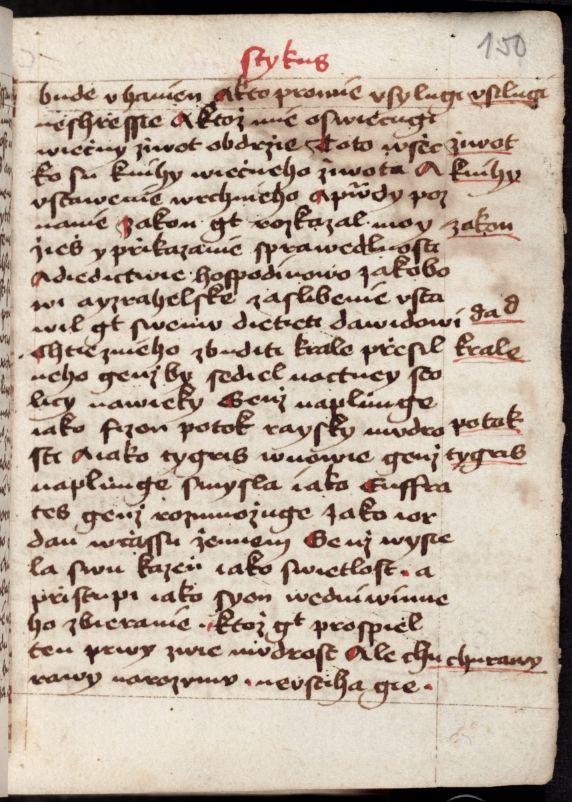 Stykus
150
bude vhanien Akto promie vsylugi
vsilugi
neshressie Aktoz mie oswiecugi
wiecny ziwot obdrzie Toto wsec
ziwot
ko su knihy wiecneho ziwota A
knihy
vstawenie wrchnieho Aprwdy poz
nanie Zakon gt rozkazal moy
zakon
zies y prikazanie sprawedlnosti
Adiedictwie hospodinowo Jakobo
wi ayzrahelske zaslibenie vsta
wil gt swemu dieteti dawidowi
dad
Chtie znieho zbuditi krale presil
krale
neho genz by sediel nactney sto
licy nawieky Genz naplnuge
iako fizon potok raysky mudro
potok
sti Aiako tygris wnowie genz
tygris
naplnuge smysla iako Euffra
tes genz rozmnozuge Jako ior
dan wczassu zenniem Genz wysie
la swu kazen iako swietlost . a
pristupi iako syon wedniwinne
ho zbieranie . ktoz gt prospiel
ten prwy zwie mudrost Ale chu
churawy
rawy narozumu . nevstiha gie .